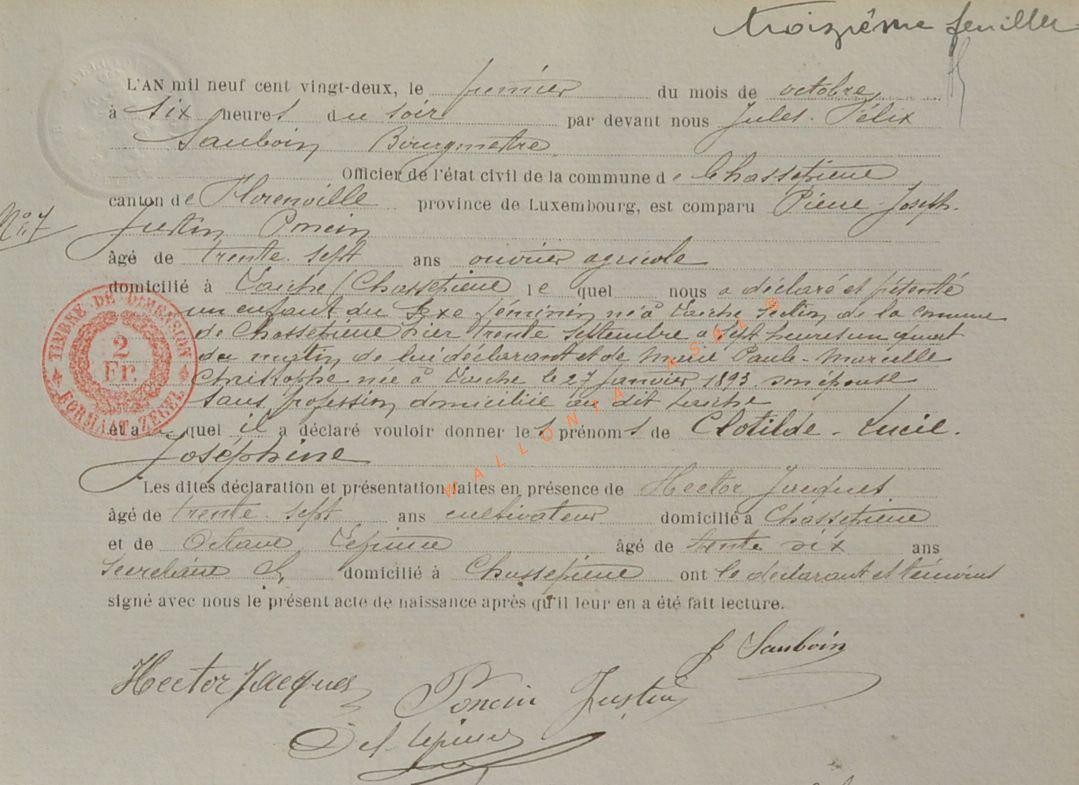 troizième feuillet
L'AN mil neuf cent vingt-deux, le premier du mois de octobre
à six heures du soir par devant nous Jules-Félix
Sauboin Bourgmestre
Officier de l'état civil de la commune de Chassepierre
canton de Florenville province de Luxembourg, est comparu Pierre-Joseph-
N° 7
Justin Poncin
âgé de trente-sept ans ouvrier agricole
domicilié à Laiche (Chassepierre le quel nous a déclaré et présenté
un enfant du Sexe féminin né à Laiche section de la commune
de Chassepierre hier trente septembre à sept heures un quart
du matin de lui déclarant et de Marie Paule-Marcelle
Christophe née à Laiche le 27 janvier 1893 son épouse
sans profession domiciliée au dit Laiche
et au quel il a déclaré vouloir donner les prénoms de Clotilde-Lucie-
Joséphine
Les dites déclaration et présentation faites en présence de Hector Jacques
âgé de trente-sept ans cultivateur domicilié à Chassepierre
et de Octave Lépine âgé de trente six ans
secrétaire domicilié à Chassepierre ont le déclarant et témoins
signé avec nous le présent acte de naissance après qu'il leur en a été fait lecture.
J Sauboin
Hector Jacques Poncin Justin
Oct. Lépine
TIMBRE DE DIMENSION
2
Fr.
FORMAAT ZEGEL
WALLONIA ASBL